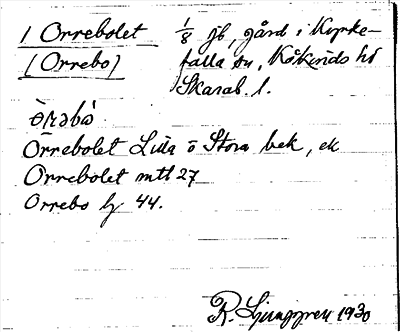 1 Orrebolet 1/8 jb, gård i Kyrke-
[Orrebo] falla sn, Kåkinds hd
Skarab. l.
Orrebolet Lilla o Stora bek, ek
Orrebolet mtl 27
Orrebo hj 44.
R. Ljunggren 1930